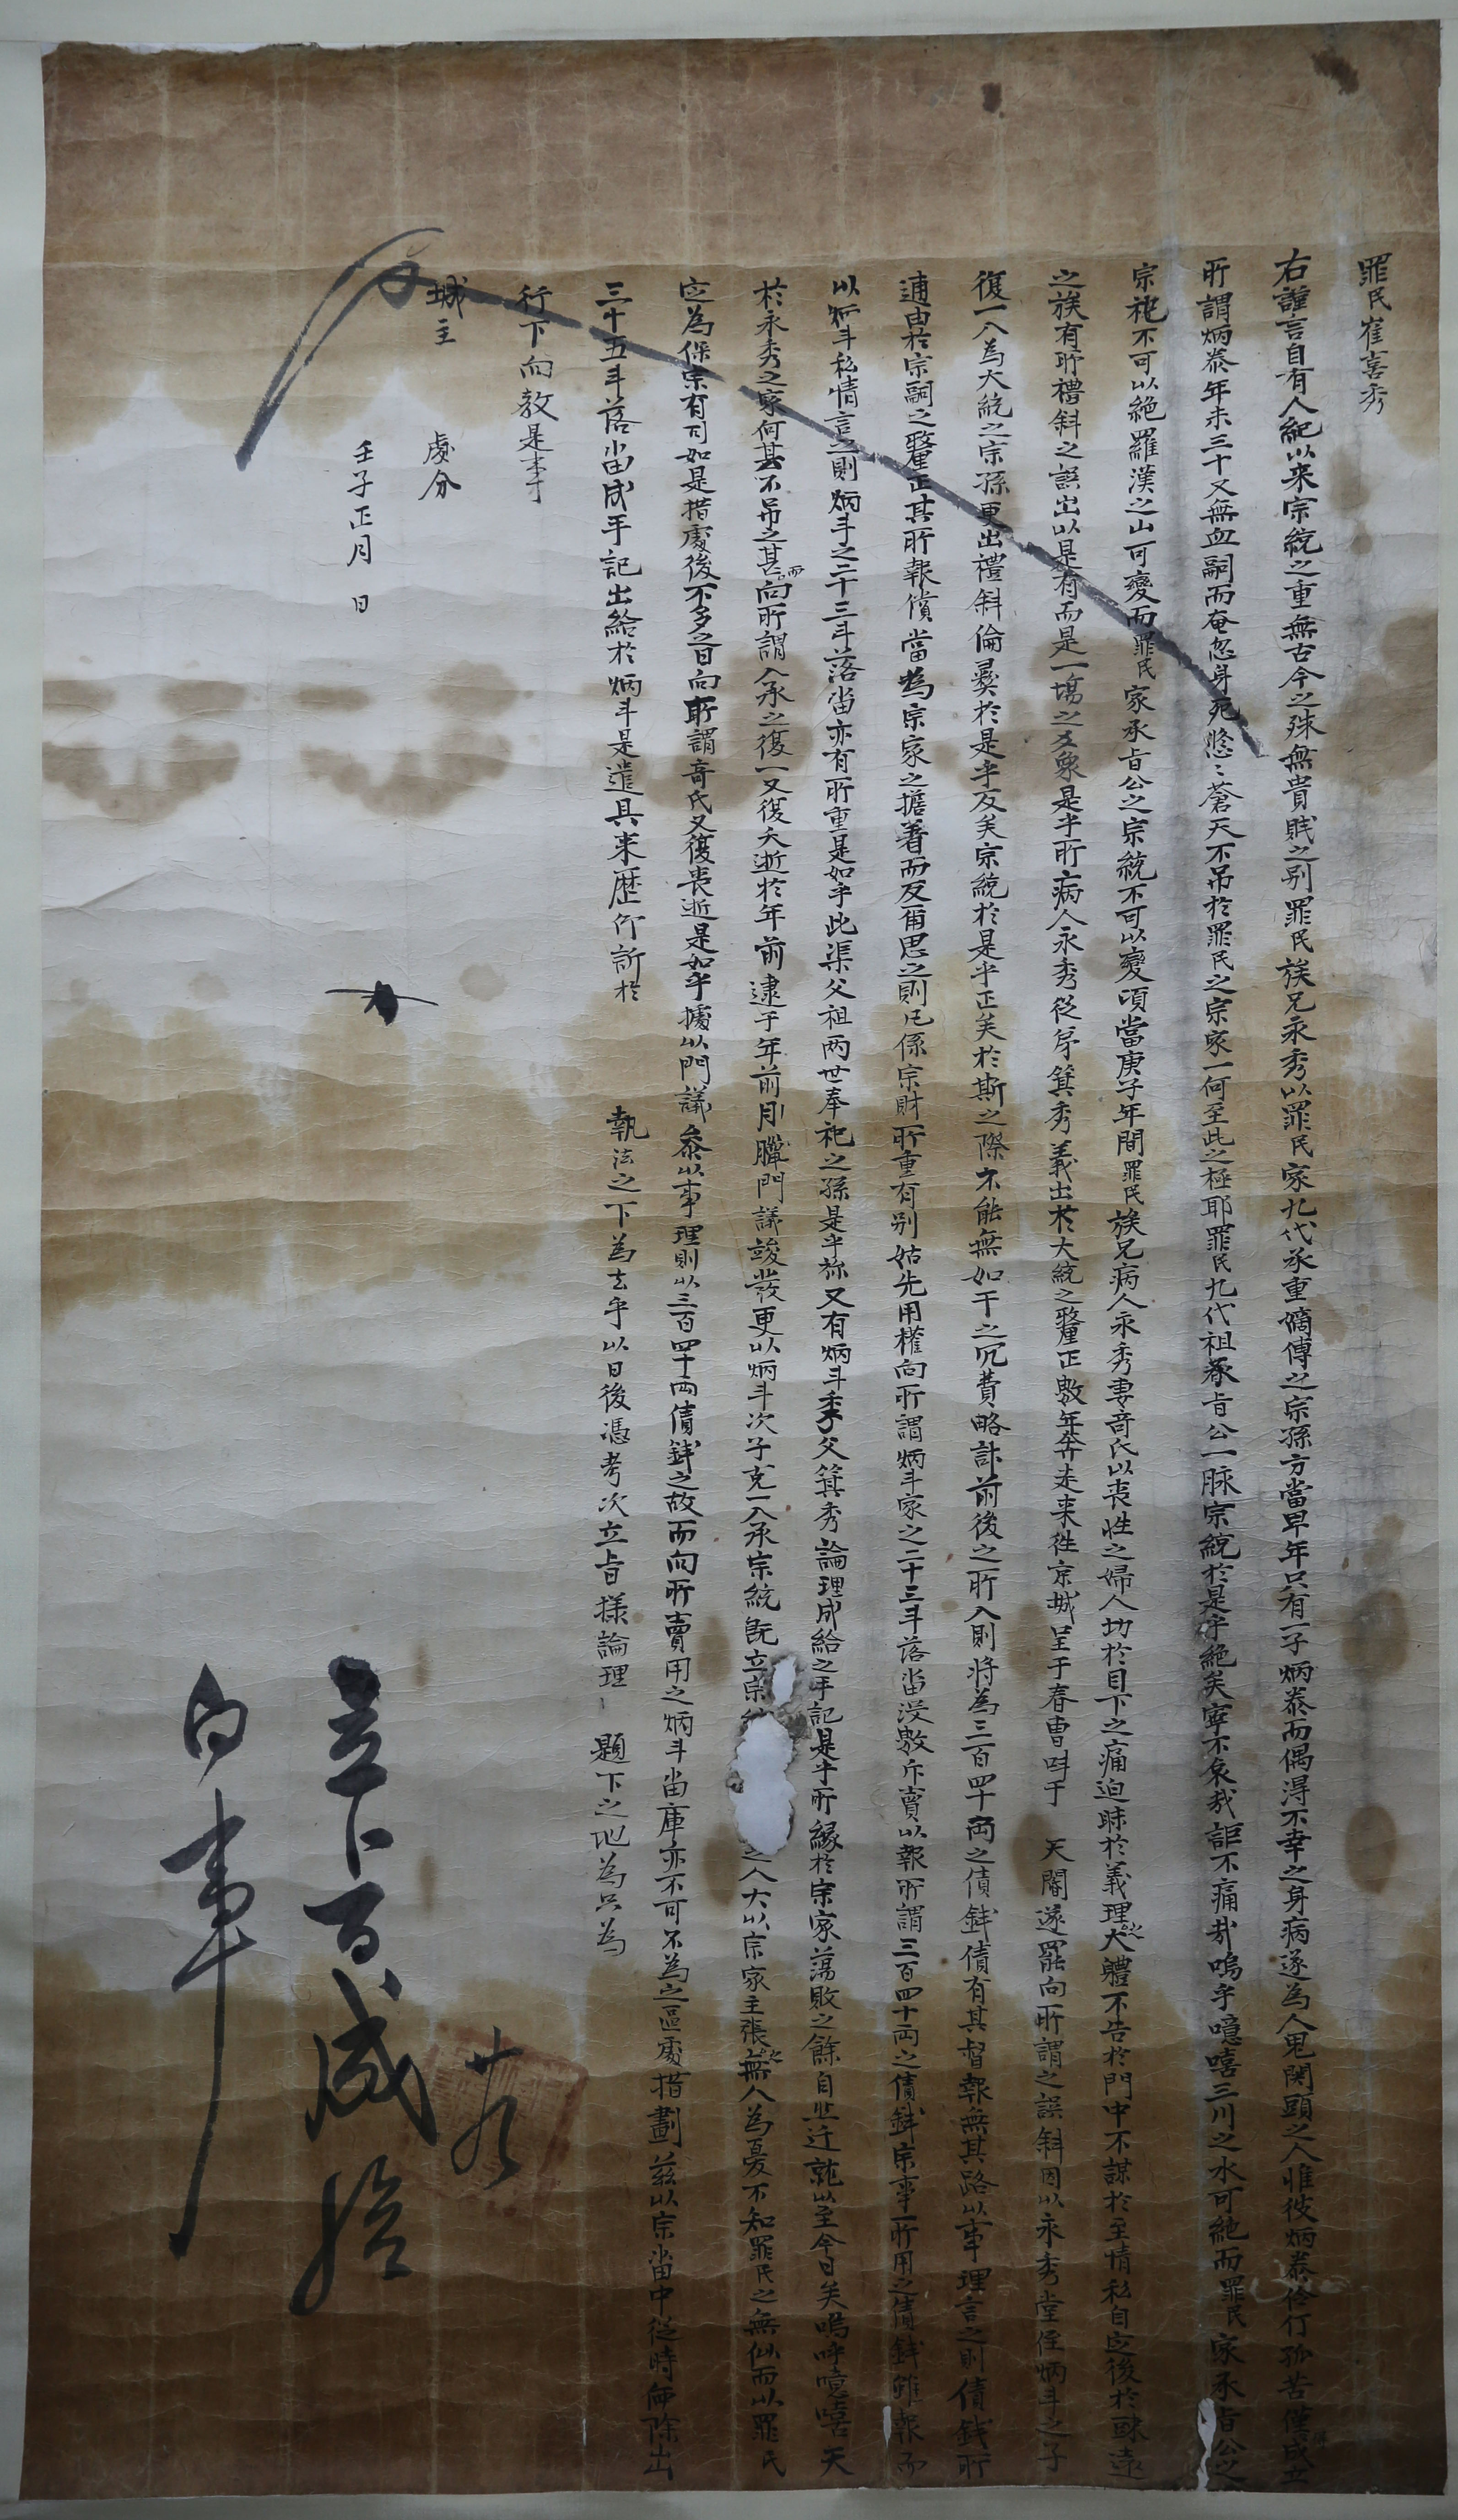 罪民崔喜秀
右謹言自有人紀以來宗統之重無古今之殊無貴賤之別罪民族兄永秀以罪民家九代承重嫡傳之宗孫方當早年只有一子炳泰而偶得不幸之身病遂為人鬼関頭之人惟彼炳泰伶仃孤苦僅成
所謂炳泰年未三十又無血嗣而奄忽身死悠〻蒼天不吊於罪民之宗家一何至此之極耶罪民九代祖承旨公一脉宗統於是乎絶矣寧不哀哉詎不痛哉嗚乎噫嘻三川之水可絶而罪民家承旨公之
宗祀不可以絶羅漢之山可變而罪民家承旨公之宗統不可以變頃當庚子年間罪民族兄病人永秀妻奇氏以喪性之婦人切於目下之痛迫昧於義理之大軆不告於門中不謀於至情私自定後於踈遠
之族有所禮斜之誤出以是有而是一塲之爻象是乎所病人永秀從弟箕秀義出於大統之釐正數年奔走來徃京城呈于春曹呌于
天閽遂罷向所謂之誤斜因以永秀堂侄炳斗之子
復一入為大統之宗孫更出禮斜倫彛於是乎反矣宗統於是乎正矣於斯之際不能無如干之冗費略計前後之所入則將為三百四十両之債錢債有其督報無其路以事理言之則債錢所
逋由於宗嗣之釐正其所報償當為宗家之擔着而反面思之則凡係宗財所重有别姑先用權向所謂炳斗家之二十三斗落畓没數斥賣以報所謂三百四十両之債錢宗事一所用之債錢雖報而
以炳斗私情言之則炳斗之二十三斗落畓亦有所重是如乎此渠父祖両世奉祀之孫是乎旀又有炳斗季父箕秀論理成給之手記是乎所緣於宗家蕩敗之餘自爾迁就以至今日矣嗚呼噫嘻天
於永秀之家何其不吊之甚而向所謂入承之復一又復夭逝於年前逮于年前月臘門議竣發更以炳斗次子克一入承宗統旣立宗之人大以宗家主張之無人為憂不知罪民之無似而以罪民
定為保宗有司如是措處後不多之日向所謂奇氏又復喪逝是如乎據以門議叅以事理則以三百四十両債錢之故而向所賣用之炳斗畓庫亦不可不為之區處措劃茲以宗畓中從時価除出
三十五斗落畓成手記出給於炳斗是遣具來歷仰訴於
執法之下為去乎以日後憑考次立旨㨾論理
題下之地為只為
行下向教是事
城主
處分
壬子正月 日
立旨成給
向事